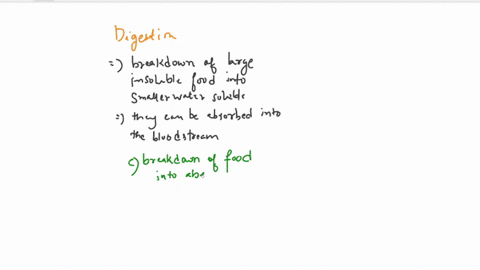 Digestion
=) breakdown of large
insoluble food into
smaller water soluble
=) they can be absorbed into
the bloodstream
c) breakdown of food
into abs